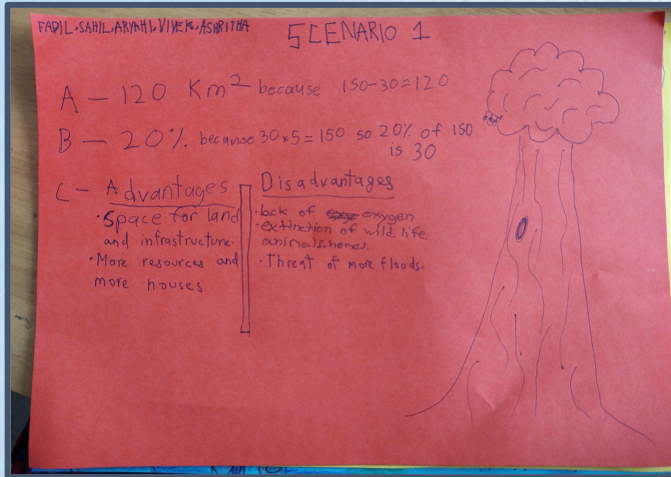 FADIL, SAHIL, ARYAHI, VIVEK, ASHRITHA
SCENARIO 1
A - 120 Km² because 150-30=120
B - 20% because 30×5=150 so 20% of 150
is 30
C - Advantages
• Space for land
and infrastructure.
• More resources and
more houses
Disadvantages
• lack of oxygen
• extinction of wild life
animals homes.
• Threat of more floods.